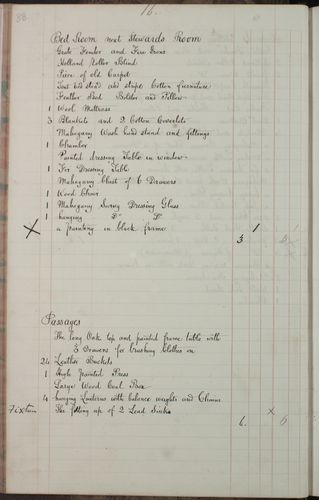 88
16.
Bed Room next Stewards Room
Grate Fender and Fire Irons
Holland Roller Blind
Piece of old Carpet
Tent bed stead and stripe Cotton furniture
Feather Bed Bolster and Pillow
1 Wool Mattress
3 Blankets and 2 Cotton Coverlets
Mahogany Wash hand stand and fittings
1 Chamber
Painted dressing Table in window
1 Fir Dressing Table
Mahogany Chest of 6 Drawers
1 Wood Chair
1 Mahogany Swing Dressing Glass
1 hanging Do Do
X a painting in black frame
3. 1
Passages
The long Oak top and painted frame table with
3 Drawers for brushing Clothes on
24 Leather Buckets
1 High Painted Press
Large Wood Coal Box
4 hanging Lanterns with balance weights and Chains
Fixture The fitting up of 2 Lead Sinks
6. x 6